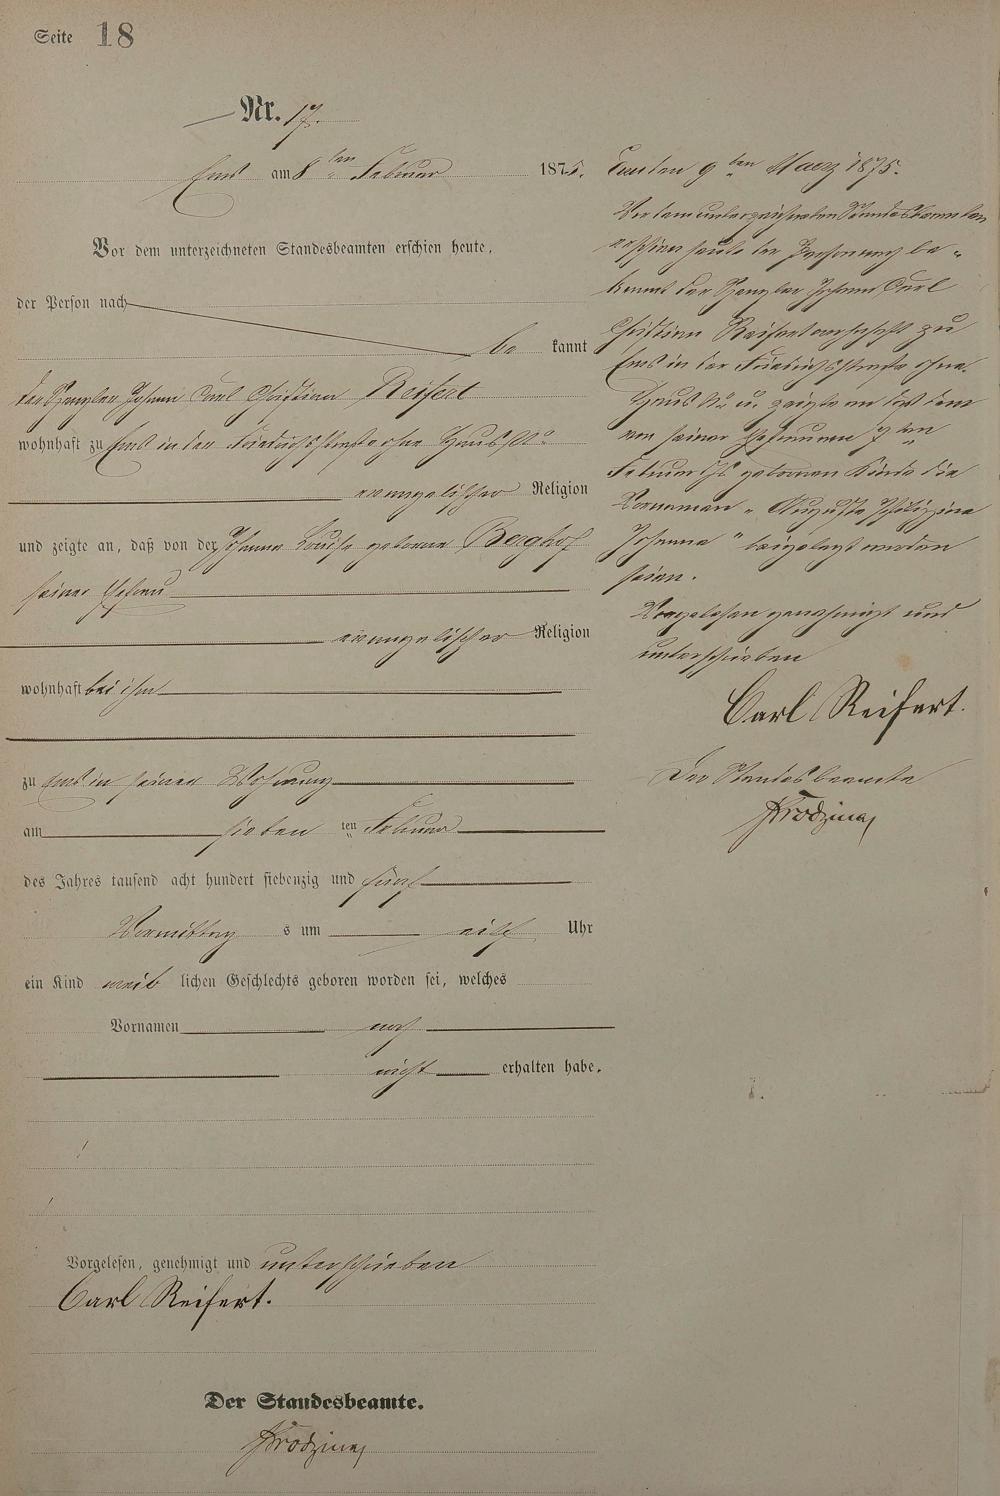 Seite 18
Nr. 17.
Ems am 8ten Februar 1875.
Vor dem unterzeichneten Standesbeamten erschien heute,
der Person nach
be kannt
der Spengler Johann Carl Christian Reifert
wohnhaft zu Ems in der Friedrichsstraße ohne Haus No
evangelischer Religion
und zeigte an, daß von der Johanna Louise geborene Berghof
seiner Ehefrau
evangelischer Religion
wohnhaft bei ihm
zu Ems in seiner Wohnung
am sieben ten Februar
des Jahres tausend acht hundert siebenzig und fünf
Vormittag s um eilf Uhr
ein Kind weib lichen Geschlechts geboren worden sei, welches
Vornamen noch
nicht erhalten habe.
Vorgelesen, genehmigt und unterschrieben
Carl Reifert.
Der Standesbeamte.
Ems den 9ten Maerz 1875.
Vor dem unterzeichneten Standesbeamten
erschien heute der Person nach be-
kannt der Spengler Johann Carl
Christian Reifert wohnhaft zu
Ems in der Friedrichsstraße ohne
Haus No u. zeigte an daß dem
von seiner Ehefrau am 7ten
Februar geborenen Kinde die
Vornamen „Auguste Philippine
Johanna" beigelegt worden
seien.
Vorgelesen genehmigt und
unterschrieben
Carl Reifert.
Der Standesbeamte